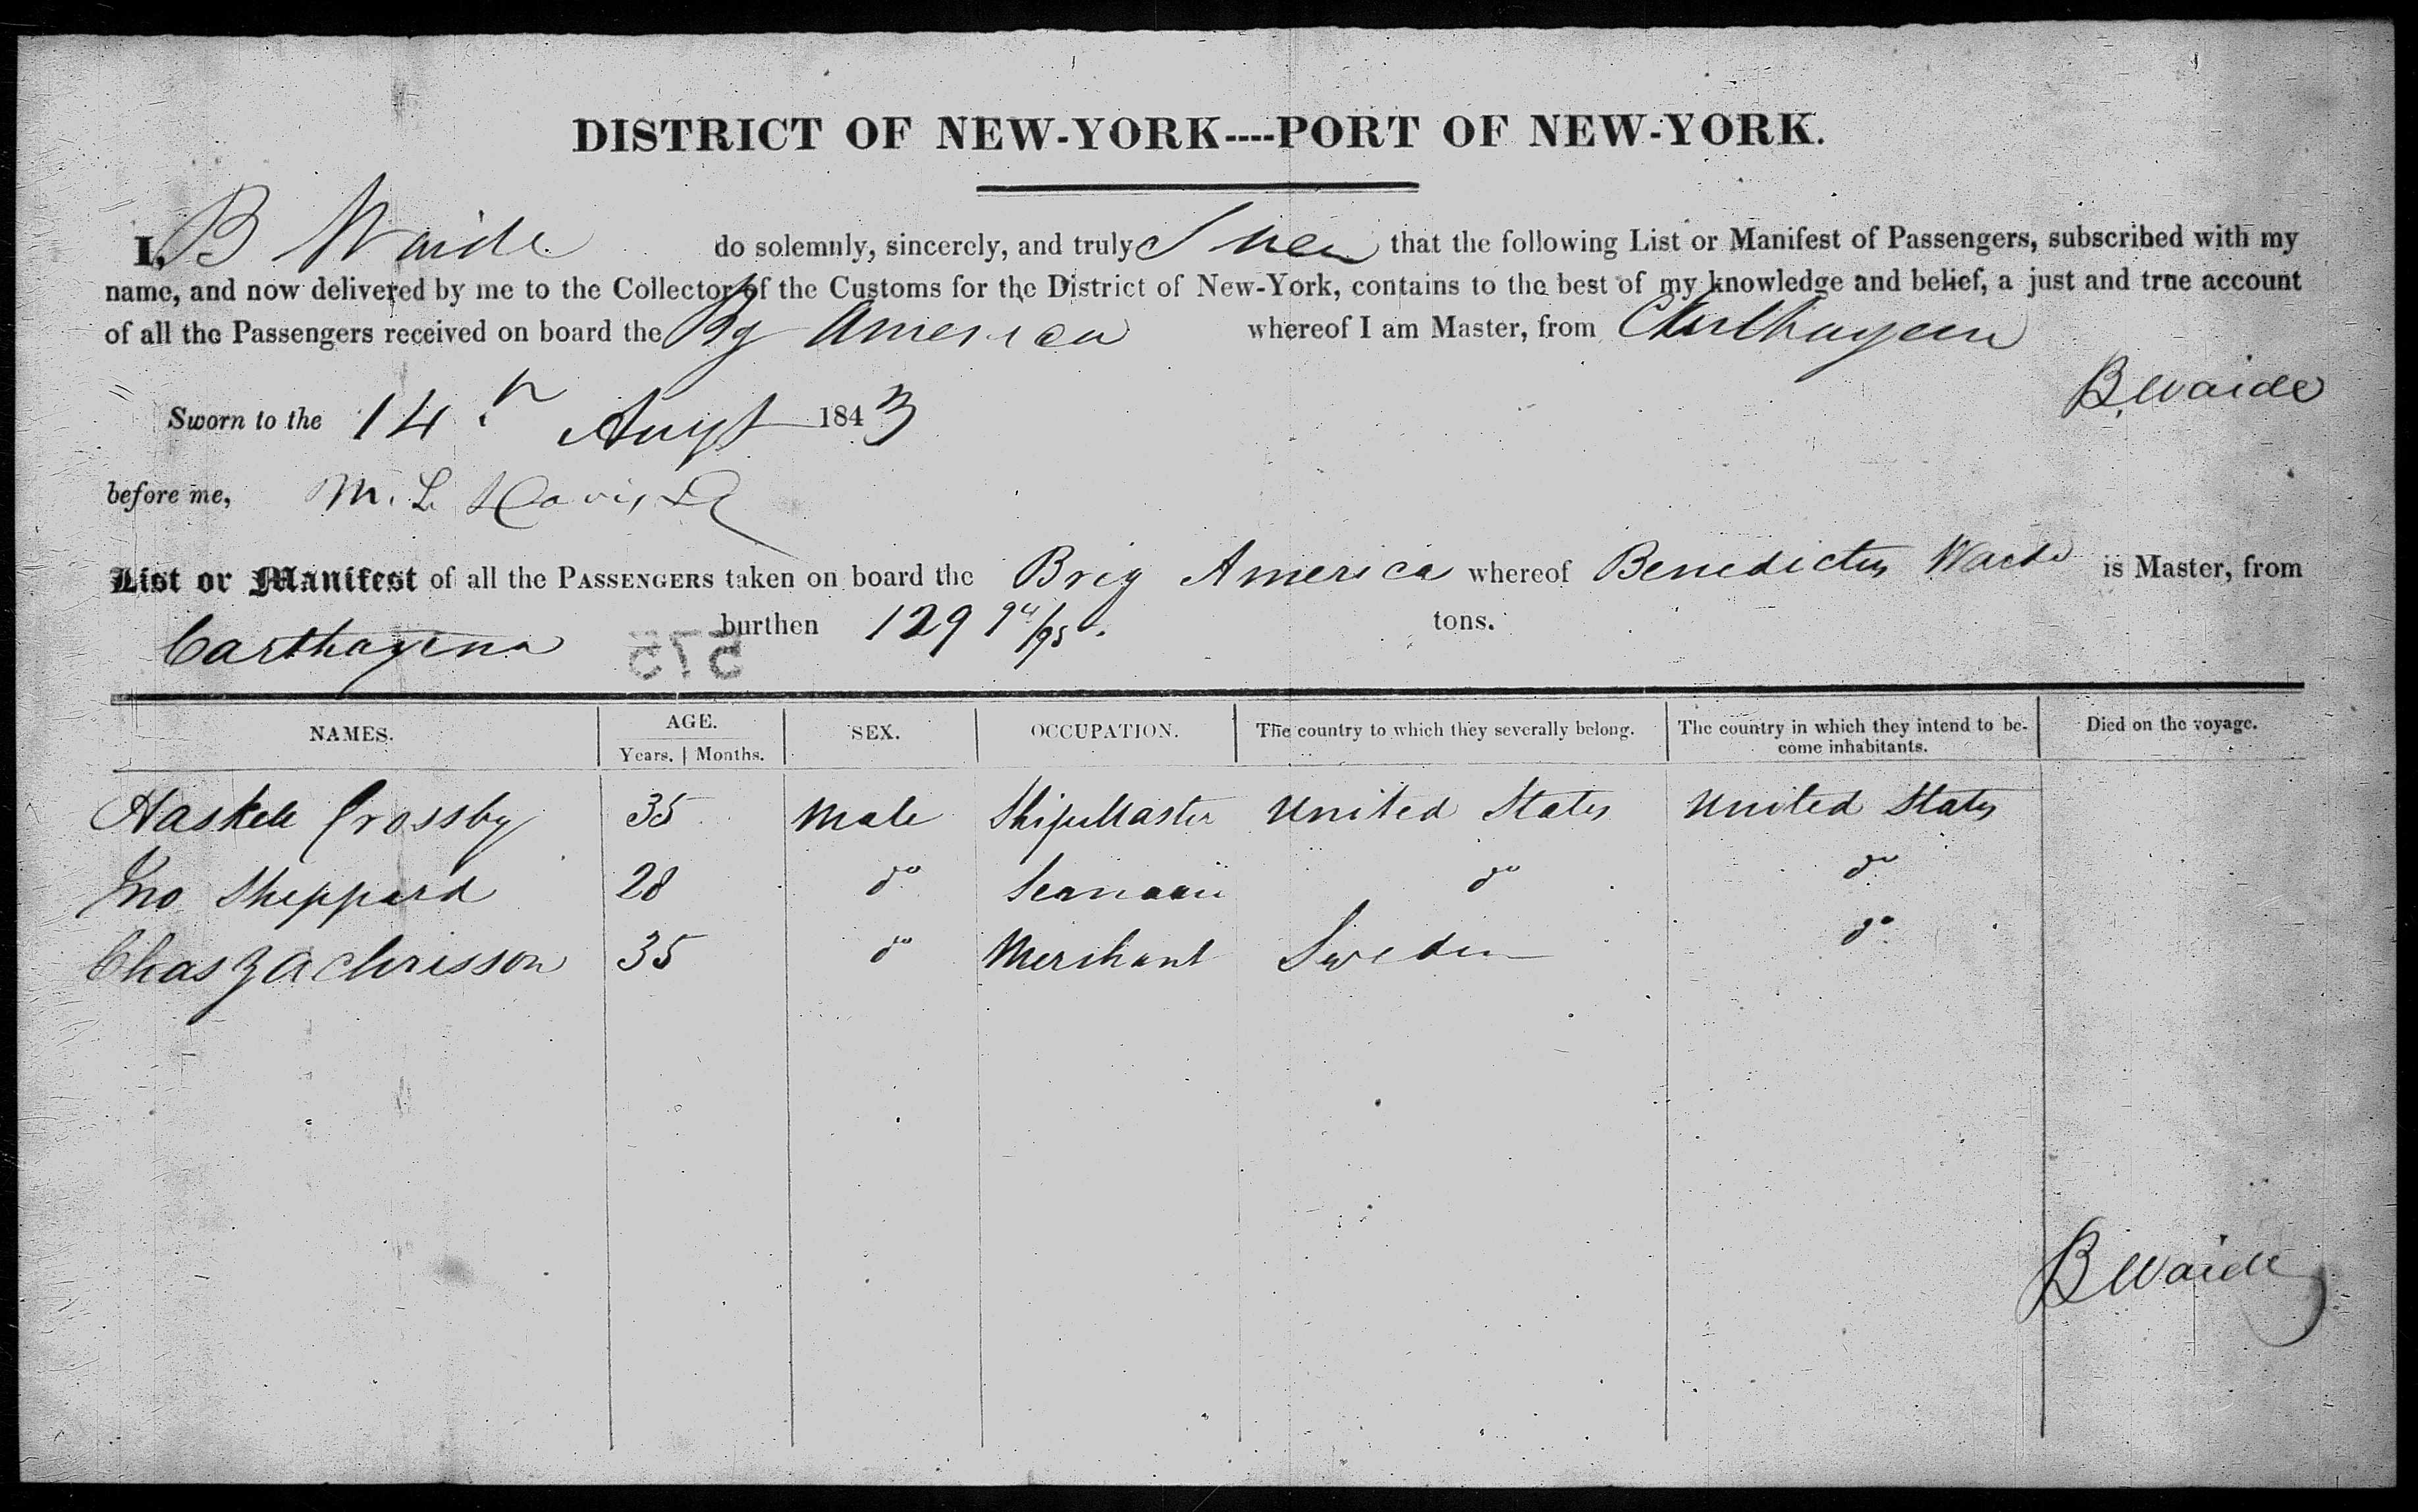 DISTRICT OF NEW-YORK----PORT OF NEW-YORK.
I, B Waide do solemnly, sincerely, and truly Swear that the following List or Manifest of Passengers, subscribed with my
name, and now delivered by me to the Collector of the Customs for the District of New-York, contains to the best of my knowledge and belief, a just and true account
of all the Passengers received on board the Bg America whereof I am Master, from Carthagena
B. Waide
Sworn to the 14th Augt 1843
before me, M. L. Davis
List or Manifest of all the PASSENGERS taken on board the Brig America whereof Benedictus Waide is Master, from
Carthagena burthen 129 94/95. tons.
575
NAMES. AGE. SEX. OCCUPATION. The country to which they severally belong. The country in which they intend to be- Died on the voyage.
Years. Months. come inhabitants.
Haskell Crossby 35 Male ShipMaster United States United States
Jno Sheppard 28 do Seaman do do
Chas Zachrisson 35 do Merchant Sweden do
B Waide